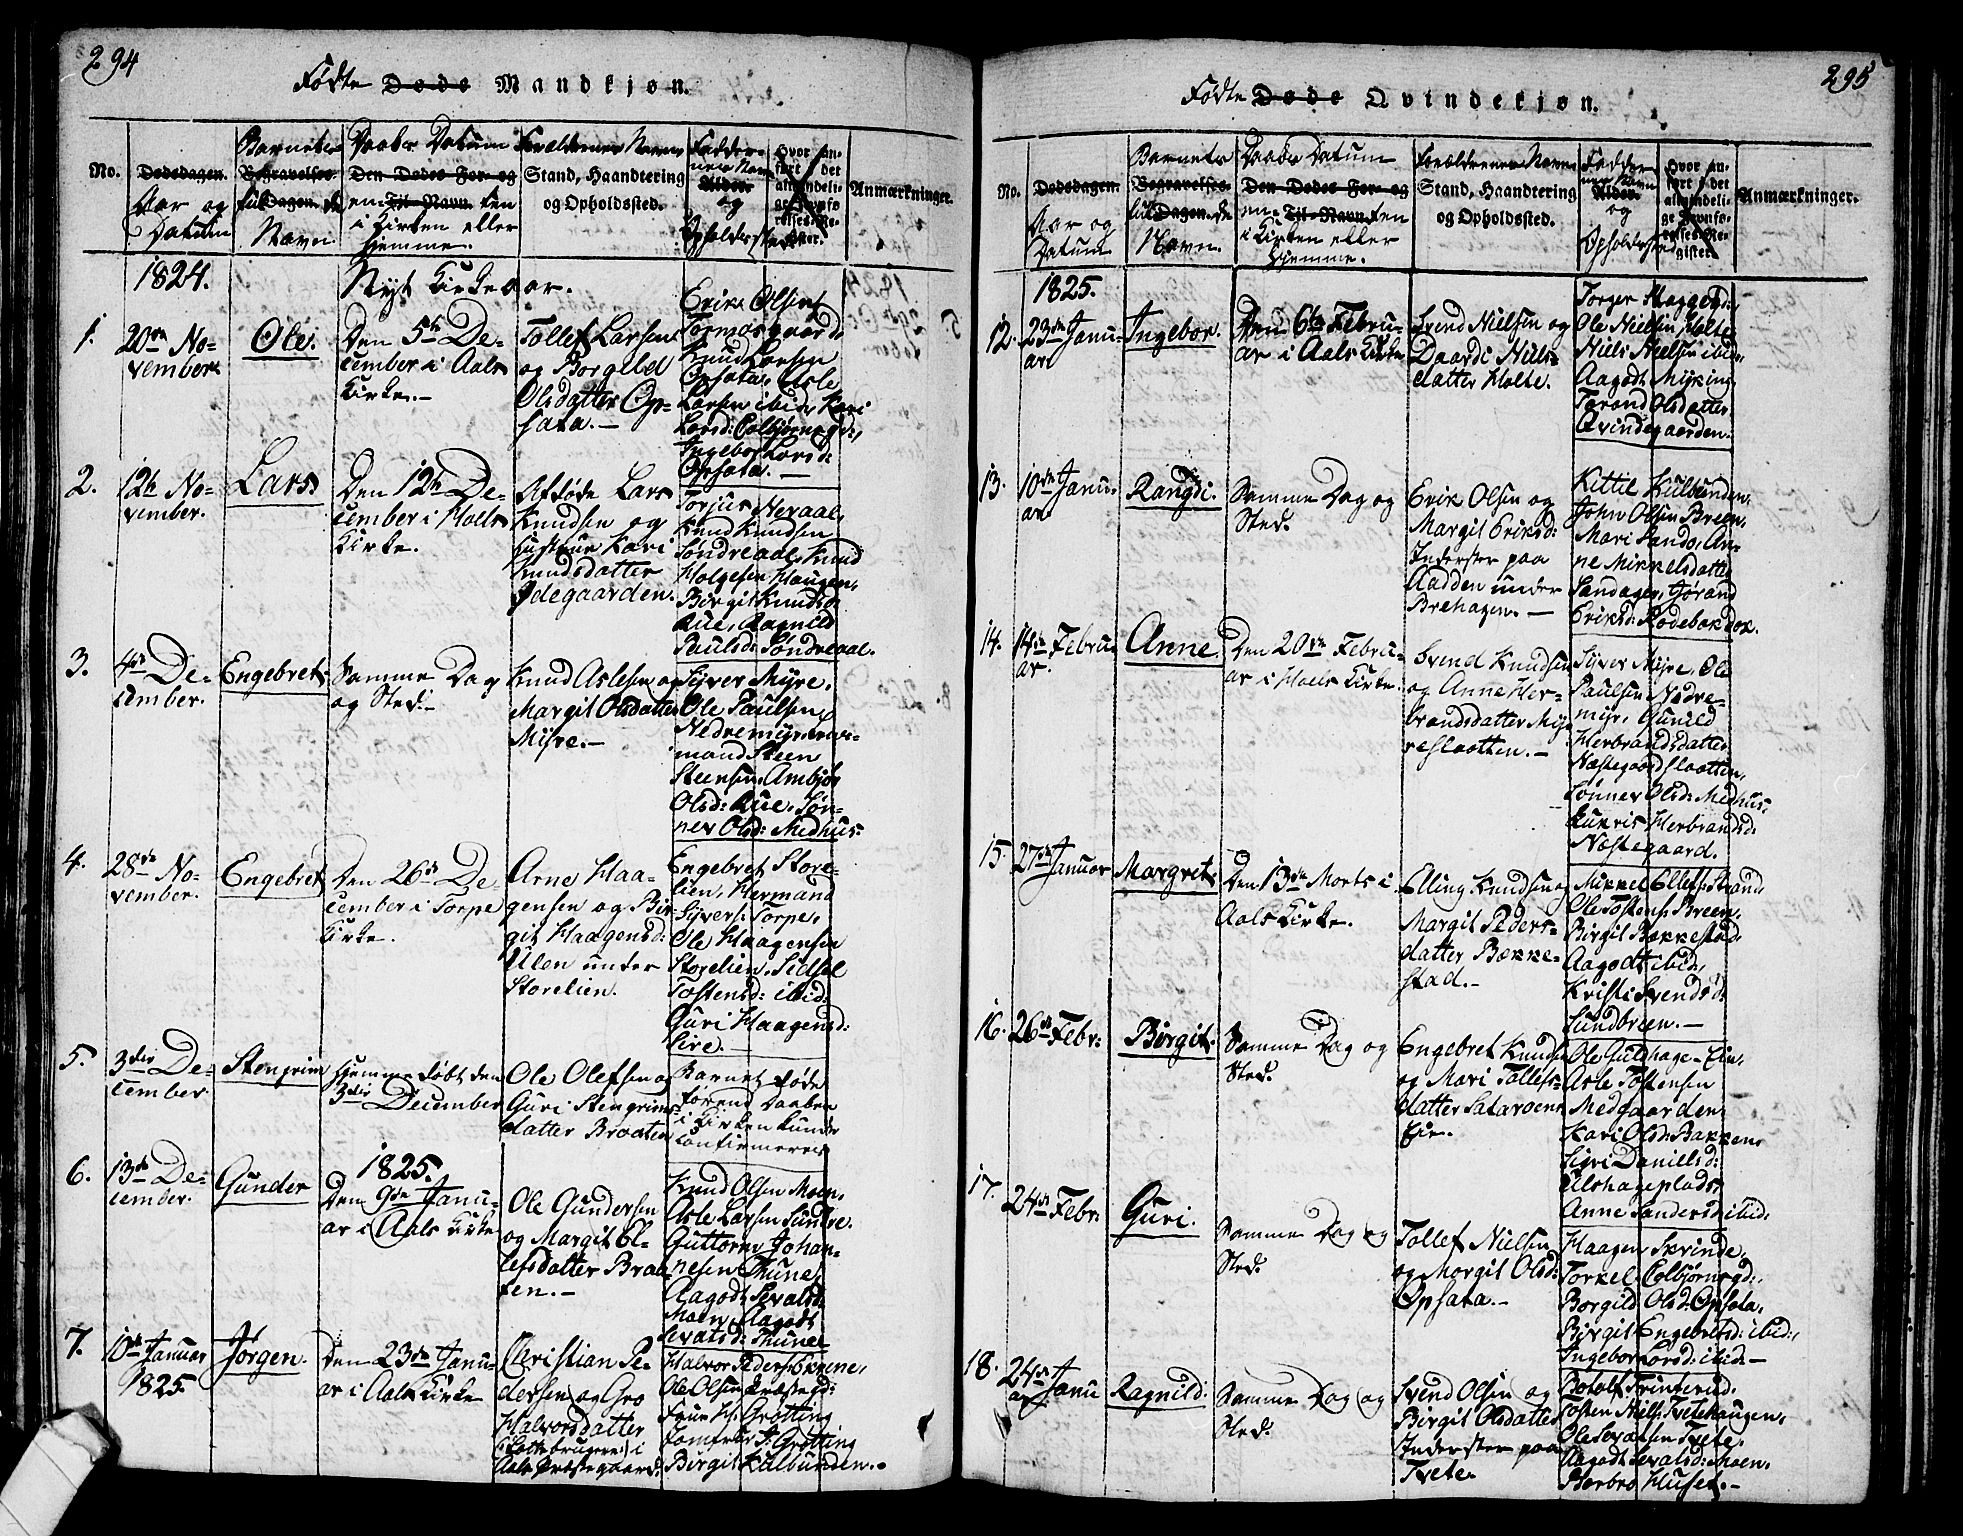 294
Fødte Døde Mandkjøn.
No.
Dødsdagen.
Aar og
Datum
Barnets
Begravelses
fulde Dagen.
Navn
Daabs Datum
Den Dødes For- og
en Til-Navn. ten
i Kirken eller
Hjemme.
Forældrenes Navne
Stand, Haandtering
og Opholdssted.
Faddernes Navn
Alder
og
Opholdssted
Hvor anført
i det
almindelige
Jevnførelses-Register.
Anmærkninger.
1824.
Nyt Kirkeaar.
1.
20de No-
vember
Ole.
Den 5te De-
cember i Aals
Kirke.-
Tollef Larsen
og Borgild
Olsdatter Op-
sata.-
Erik Olsen
Tormosgaard
Knud Larsen
Opsata, Asle
Larsen ibid, Kari
Larsd: Colbjørnsgd:,
Ingebor Larsd:
Opsata.-
2.
12te No-
vember.
Lars
Den 12te De-
cember i Hols
Kirke.
Afdøde Lars
Knudsen og
Hustrue Kari
Knudsdatter
Ødegaarden.
Torjus Neraal,
Knud Knudsen
Søndreaal, Knud
Holgesen Haugen,
Birgit Knudsd.
Rue, Ragnild
Paulsd: Søndreaal.
3.
4de De-
cember.
Engebret
Samme Dag
og Sted.-
Knud Aslesen og
Margit Olsdatter
Myre.-
Syver Myre,
Ole Paulsen
Nedremyr,
Steen
Steensen, Ambjør
Olsd: Rue, Søn-
nev Olsd: Medhus.
4.
28de No-
vember.
Engebret
Den 26de De-
cember i Torpe
Kirke.
Arne Haa-
gensen og Bir-
git Haagensd:
Ulen under
Storelien.
Engebret Store-
lien, Hermand
Syvers: Torpe,
Ole Haagensen
Storelien, Sidsel
Tostensd: ibid:
Guri Haagensd:
Lire.-
5.
3die De-
cember.
Stengrim
Hjemmedøbt den
3die December
Ole Olefsen og
Guri Stengrims-
datter Braaten
Barnet døde
forend Daaben
i Kirken kunde
confirmeres
6.
13de De-
cember.
Gunder
1825.
Den 9de Janu-
ar i Aals Kirke
Ole Gundersen
og Margit El-
lefsdatter Braa-
ten.-
Knud Olsen Moen,
Asle Larsen Sundre,
Guttorm Johan-
nesen Thune,
Aagodt Sevalsd:
Moen, Aagodt
Sevatsd: Thune
7.
10de Januar
1825.
Jørgen.
Den 23de Janu-
ar i Aals Kirke
Christian Pe-
dersen og Gro
Halvorsdatter
(: Lottebrugere:) i
Aals Præstegaard.
Halvor Peders: Exene,
Ole Olsen Præstegd:
Frue H: Grøtting
Jomfrue S: Grøtting
Birgit Kulbunden.
295
Fødte Døde Qvindekjøn.
No.
Dødsdagen.
Aar og
Datum
Barnets
Begravelses
fulde Dagen.
Navn.
Daabs Datum
Den Dødes For- og
en Til-Navn. ten
i Kirken eller
Hjemme.
Forældrenes Navne
Stand, Haandtering
og Opholdssted.
Faddernes Navn
Alder
og
Opholdssted
Hvor anført
i det
almindelige
Jevnførelses-Register.
Anmærkninger.
1825.
12.
23de Janu-
ar
Ingebor.
Den 6te Febru-
ar i Aals Kirke
Svend Nielsen og
Daardi Niels-
datter Holte.
Torger Skaggd:,
Ole Nielsen Holte,
Niels Nielsen ibid,
Aagodt Myking,
Torand Olsdatter
Qvindegaarden.
13.
10de Janu-
ar
Rangdi.
Samme Dag og
Sted.
Erik Olsen og
Margit Eriksd:
Inderster paa
Aadden under
Brehagen.-
Kittil Kulbunden,
John Olsen Breen,
Mari Sando, An-
ne Mikkelsdatter
Sandager, Jørand
Eriksd: Rodebakdok.
14.
14de Febru-
ar
Anne.
Den 20de Febru-
ar i Hols Kirke.
Svend Knudsen
og Anne Her-
brandsdatter My-
reslaatten.-
Syver Myre, Ole
Paulsen Nedre-
myr, Gunild
Herbrandsdatter
Næstegaardslaatten,
Sønnev Olsd: Medhus,
Guxris Herbrandsd:
Næstegaard.
15.
27de Januar
Margret
Den 13de Marts i
Aals Kirke.
Elling Knudsen og
Margit Peders-
datter Bække-
stad.-
Mikkel Ellefs: Strand,
Ole Tostens: Breen,
Birgit Bækkestad,
Aagodt ibid,
Kristi Svendsd:
Sundbreen.-
16.
26de Febr:
Birgit.
Samme Dag og
Sted.
Engebret Knudsen
og Mari Tollefs-
datter Sataroens
Eie.
Ole Gulshage-Eie,
Asle Tostensen
Medgaarden,
Kari Olsd: Bakken,
Sigri Danielsd:
Ulshageplads,
Anne Sandersd: ibid:
17.
24de Febr:
Guri.
Samme Dag og
Sted.
Tollef Nielsen
og Margit Olsd:
Opsata.-
Haagen Skrinde,
Torkel Colbjørnsgd:,
Borgild Olsd: Opsata,
Birgit Engebretsd: ibid:,
Ingebor Larsd: ibid:-
18.
24de Janu-
ar
Ragnild.
Samme Dag og
Sted.
Svend Olsen og
Birgit Olsdatter
Inderster paa
Tvete.
Botolf Trinterud,
Tosten Niels: Tvetehaugen,
Ole Svansen Tvete,
Aagodt Sevalsd: Moen,
Barbro Huset.-